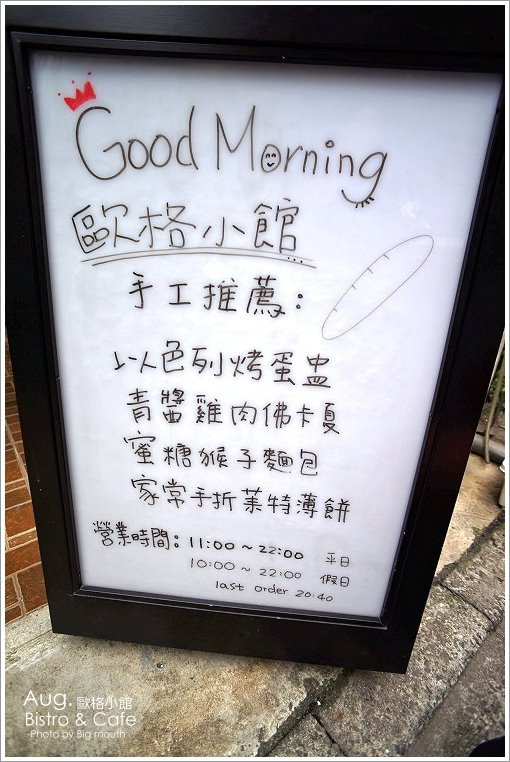 Good Morning
歐格小館...
手工推薦：
以色列烤蛋盅
青醬雞肉佛卡夏
蜜糖猴子麵包
家常手折萊特薄餅
營業時間：11:00~22:00 平日
10:00~22:00 假日
last order 20:40
Aug. 歐格小館
Bistro & Cafe
Photo by Big mouth